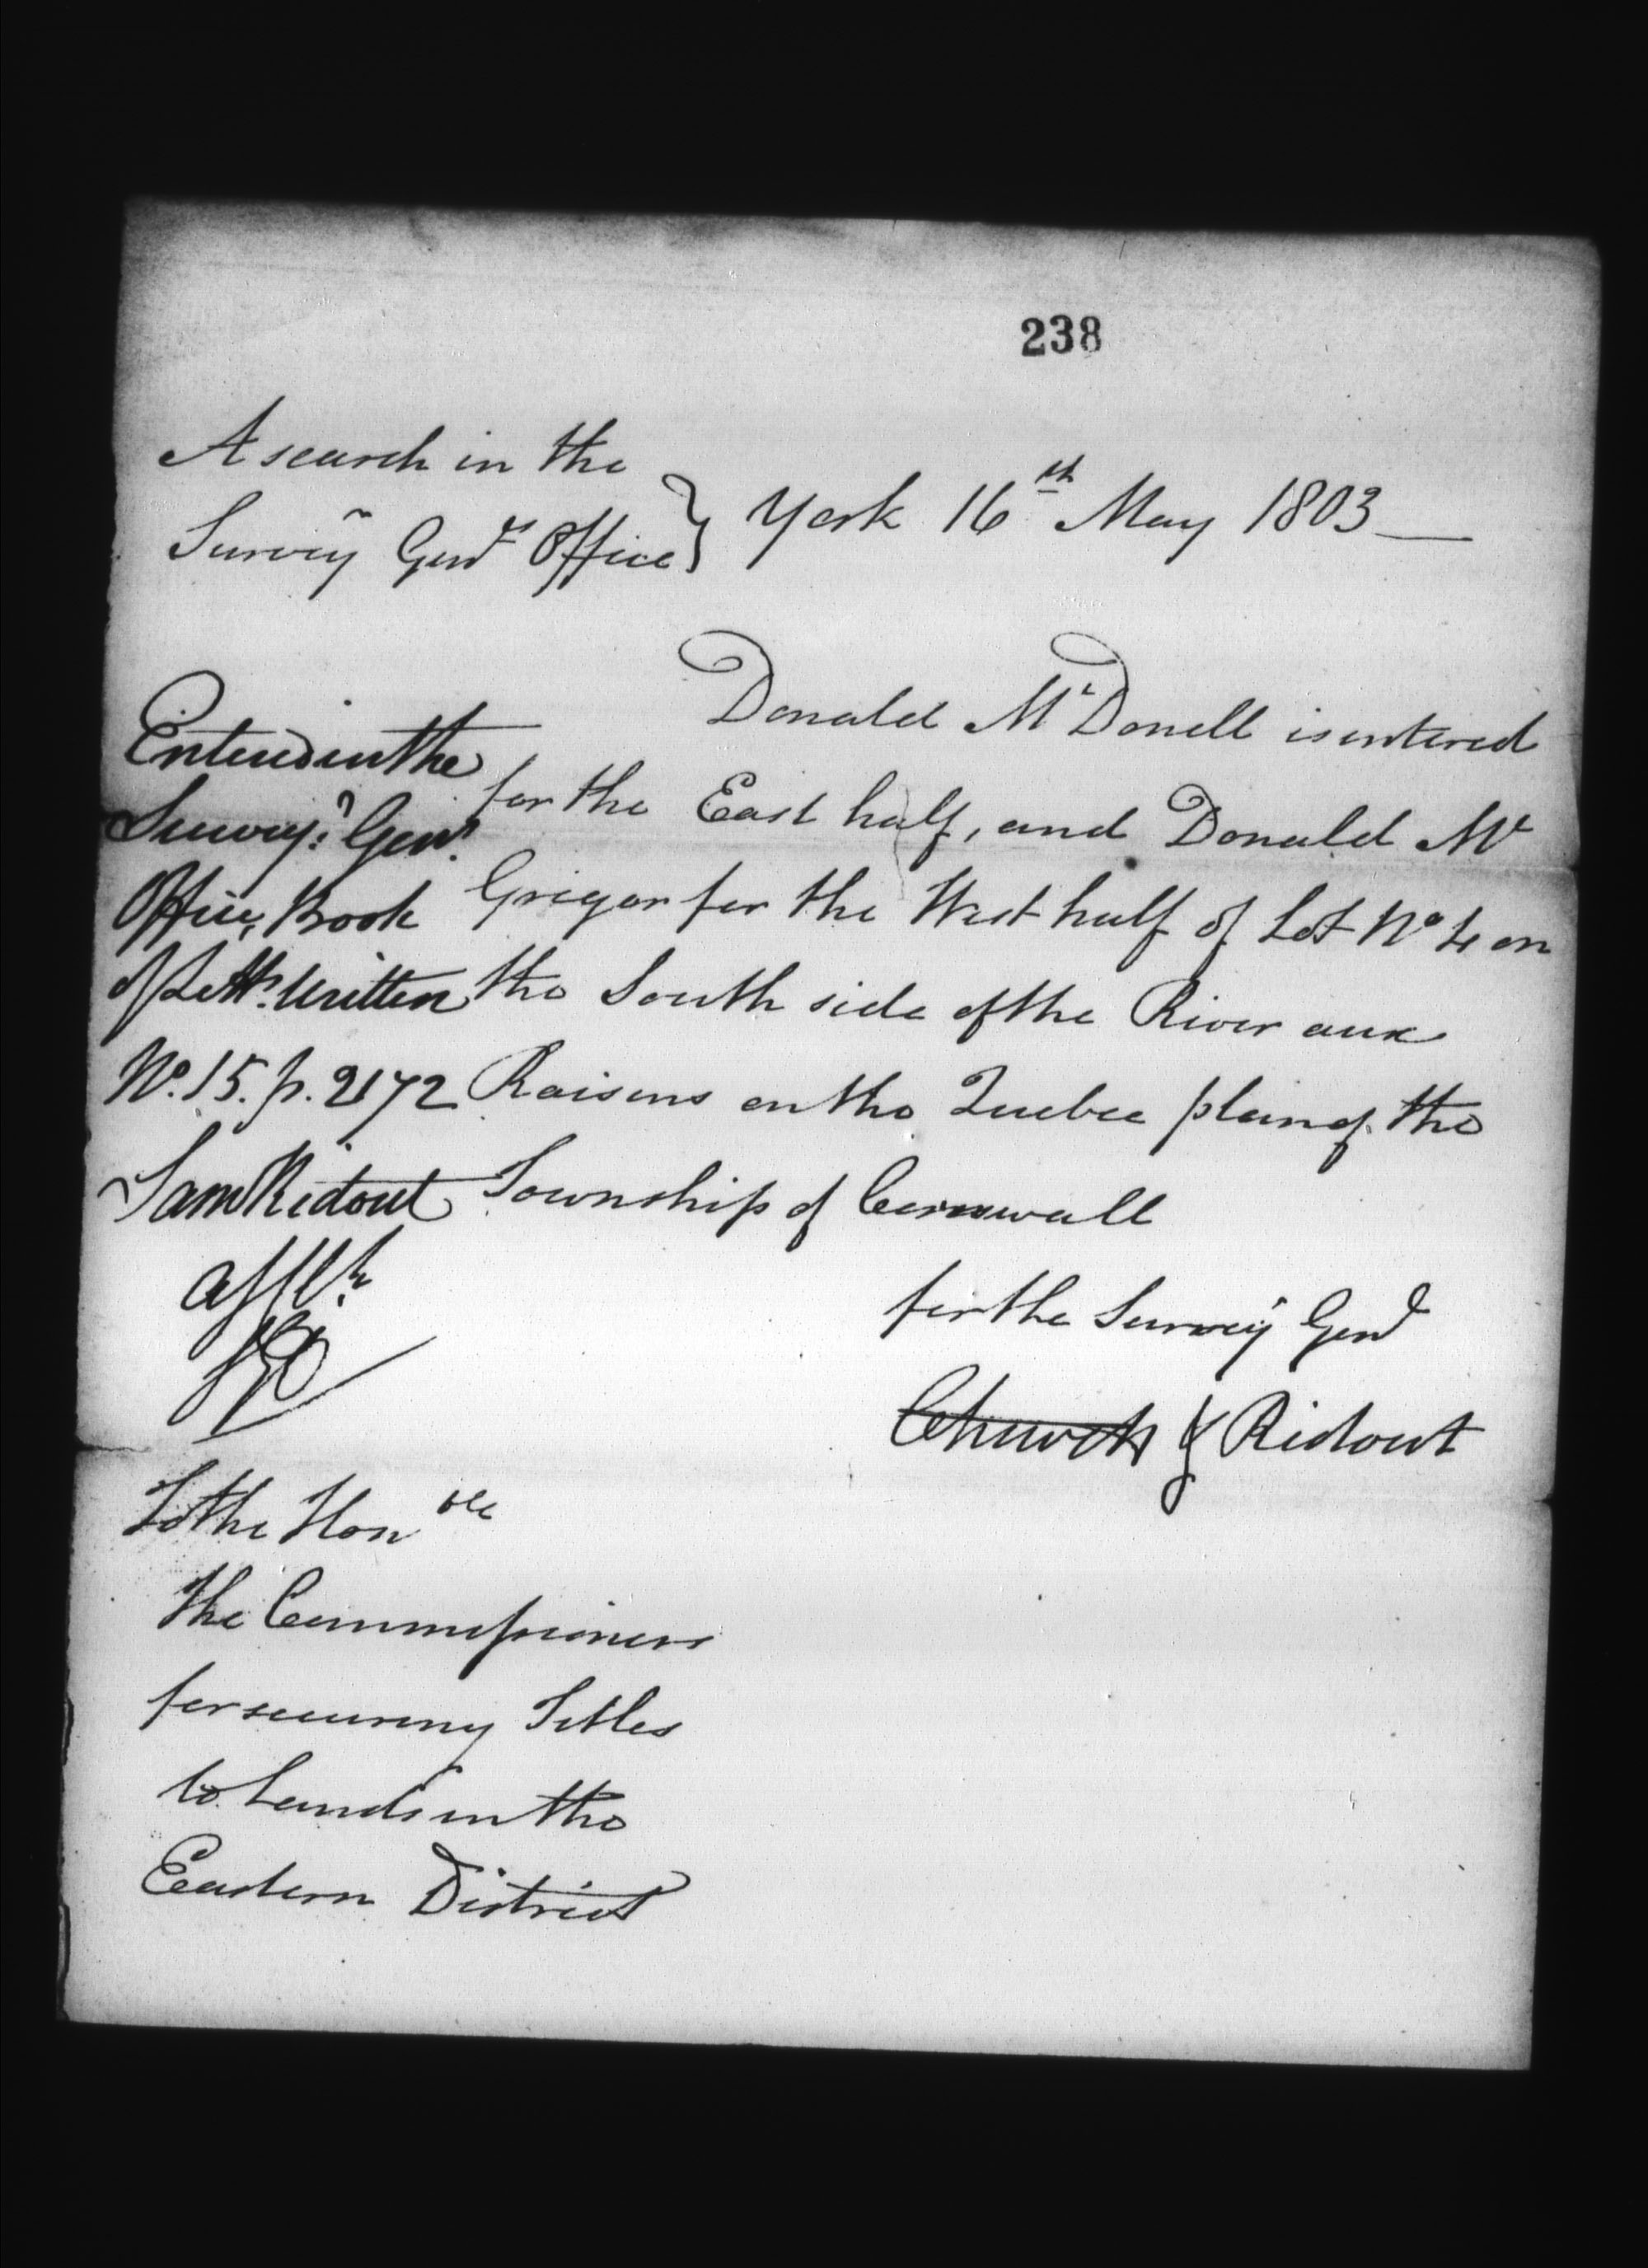 238
A search in the
Survey^r Gen^ls Office } York 16^th May 1803 —
Donald M^c Donell is entered
for the East half, and Donald M^c
Grigor for the West half of Lot N^o 4 on
the South side of the River aux
Raisins on the Quebec plan of the
Township of Cornwall
Entered in the
Survey^r Gen^ls
Office, Book
of Lett^rs Written
N^o. 15. p. 2172
Sam Ridout
for the Survey^r Gen^l
Chewett & Ridout
To the Hon^ble
the Commissioners
for securing Titles
to Lands in the
Eastern District